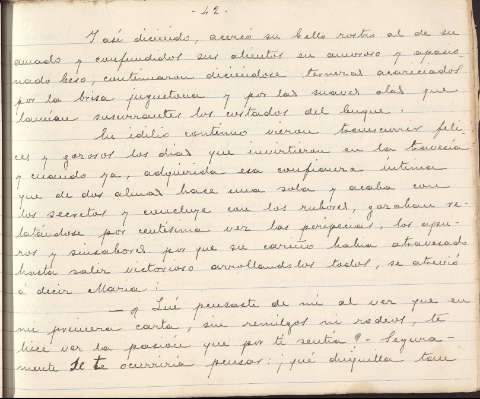 - 42 -
Y asi diciendo, acercó su bello rostro al de su
amado y confundidos sus alientos en amoroso y apasio
nado beso, continuaron diciendose ternezas acariciados
por la brisa juguetona y por las suaves olas que
lamian susurrantes los costados del buque.
En idilio continuo vieron transcurrir feli-
ces y gozosos los dias que invirtieron en la travesía
y cuando ya, adquirida esa confianza íntima
que de dos almas hace una sola y acaba con
los secretos y concluye con los rubores, gozaban re-
latándose por centesima vez las peripecias, los apu-
ros y sinsabores por que su cariño habia atravesado
hasta salir victorioso arrollandolos todos, se atrevió
á decir Maria:
— ¿ Qué pensaste de mi al ver que en
mi primera carta, sin remilgos ni rodeos, te
hice ver la pasion que por ti sentia? - Segura-
mente se te ocurriria pensar: ¡qué chiquilla tan